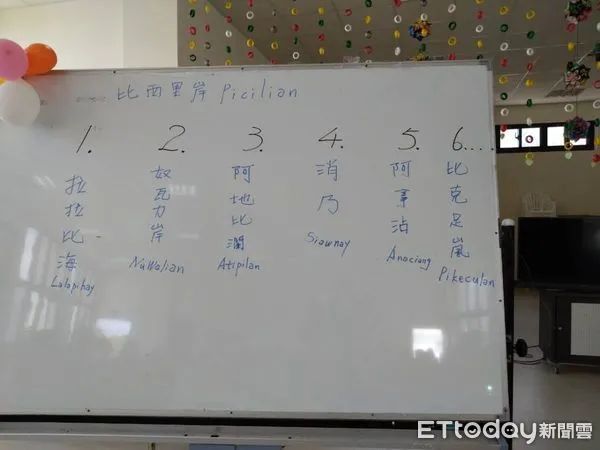 比西里岸 Picilian
1. 2. 3. 4. 5. 6....
拉拉比海
Lalapihay
奴瓦力岸
NuWalian
阿地比瀾
Atipilan
消乃
Siawnay
阿拿沾
Anociang
比克足嵐
Pikeculan
ETtoday新聞雲